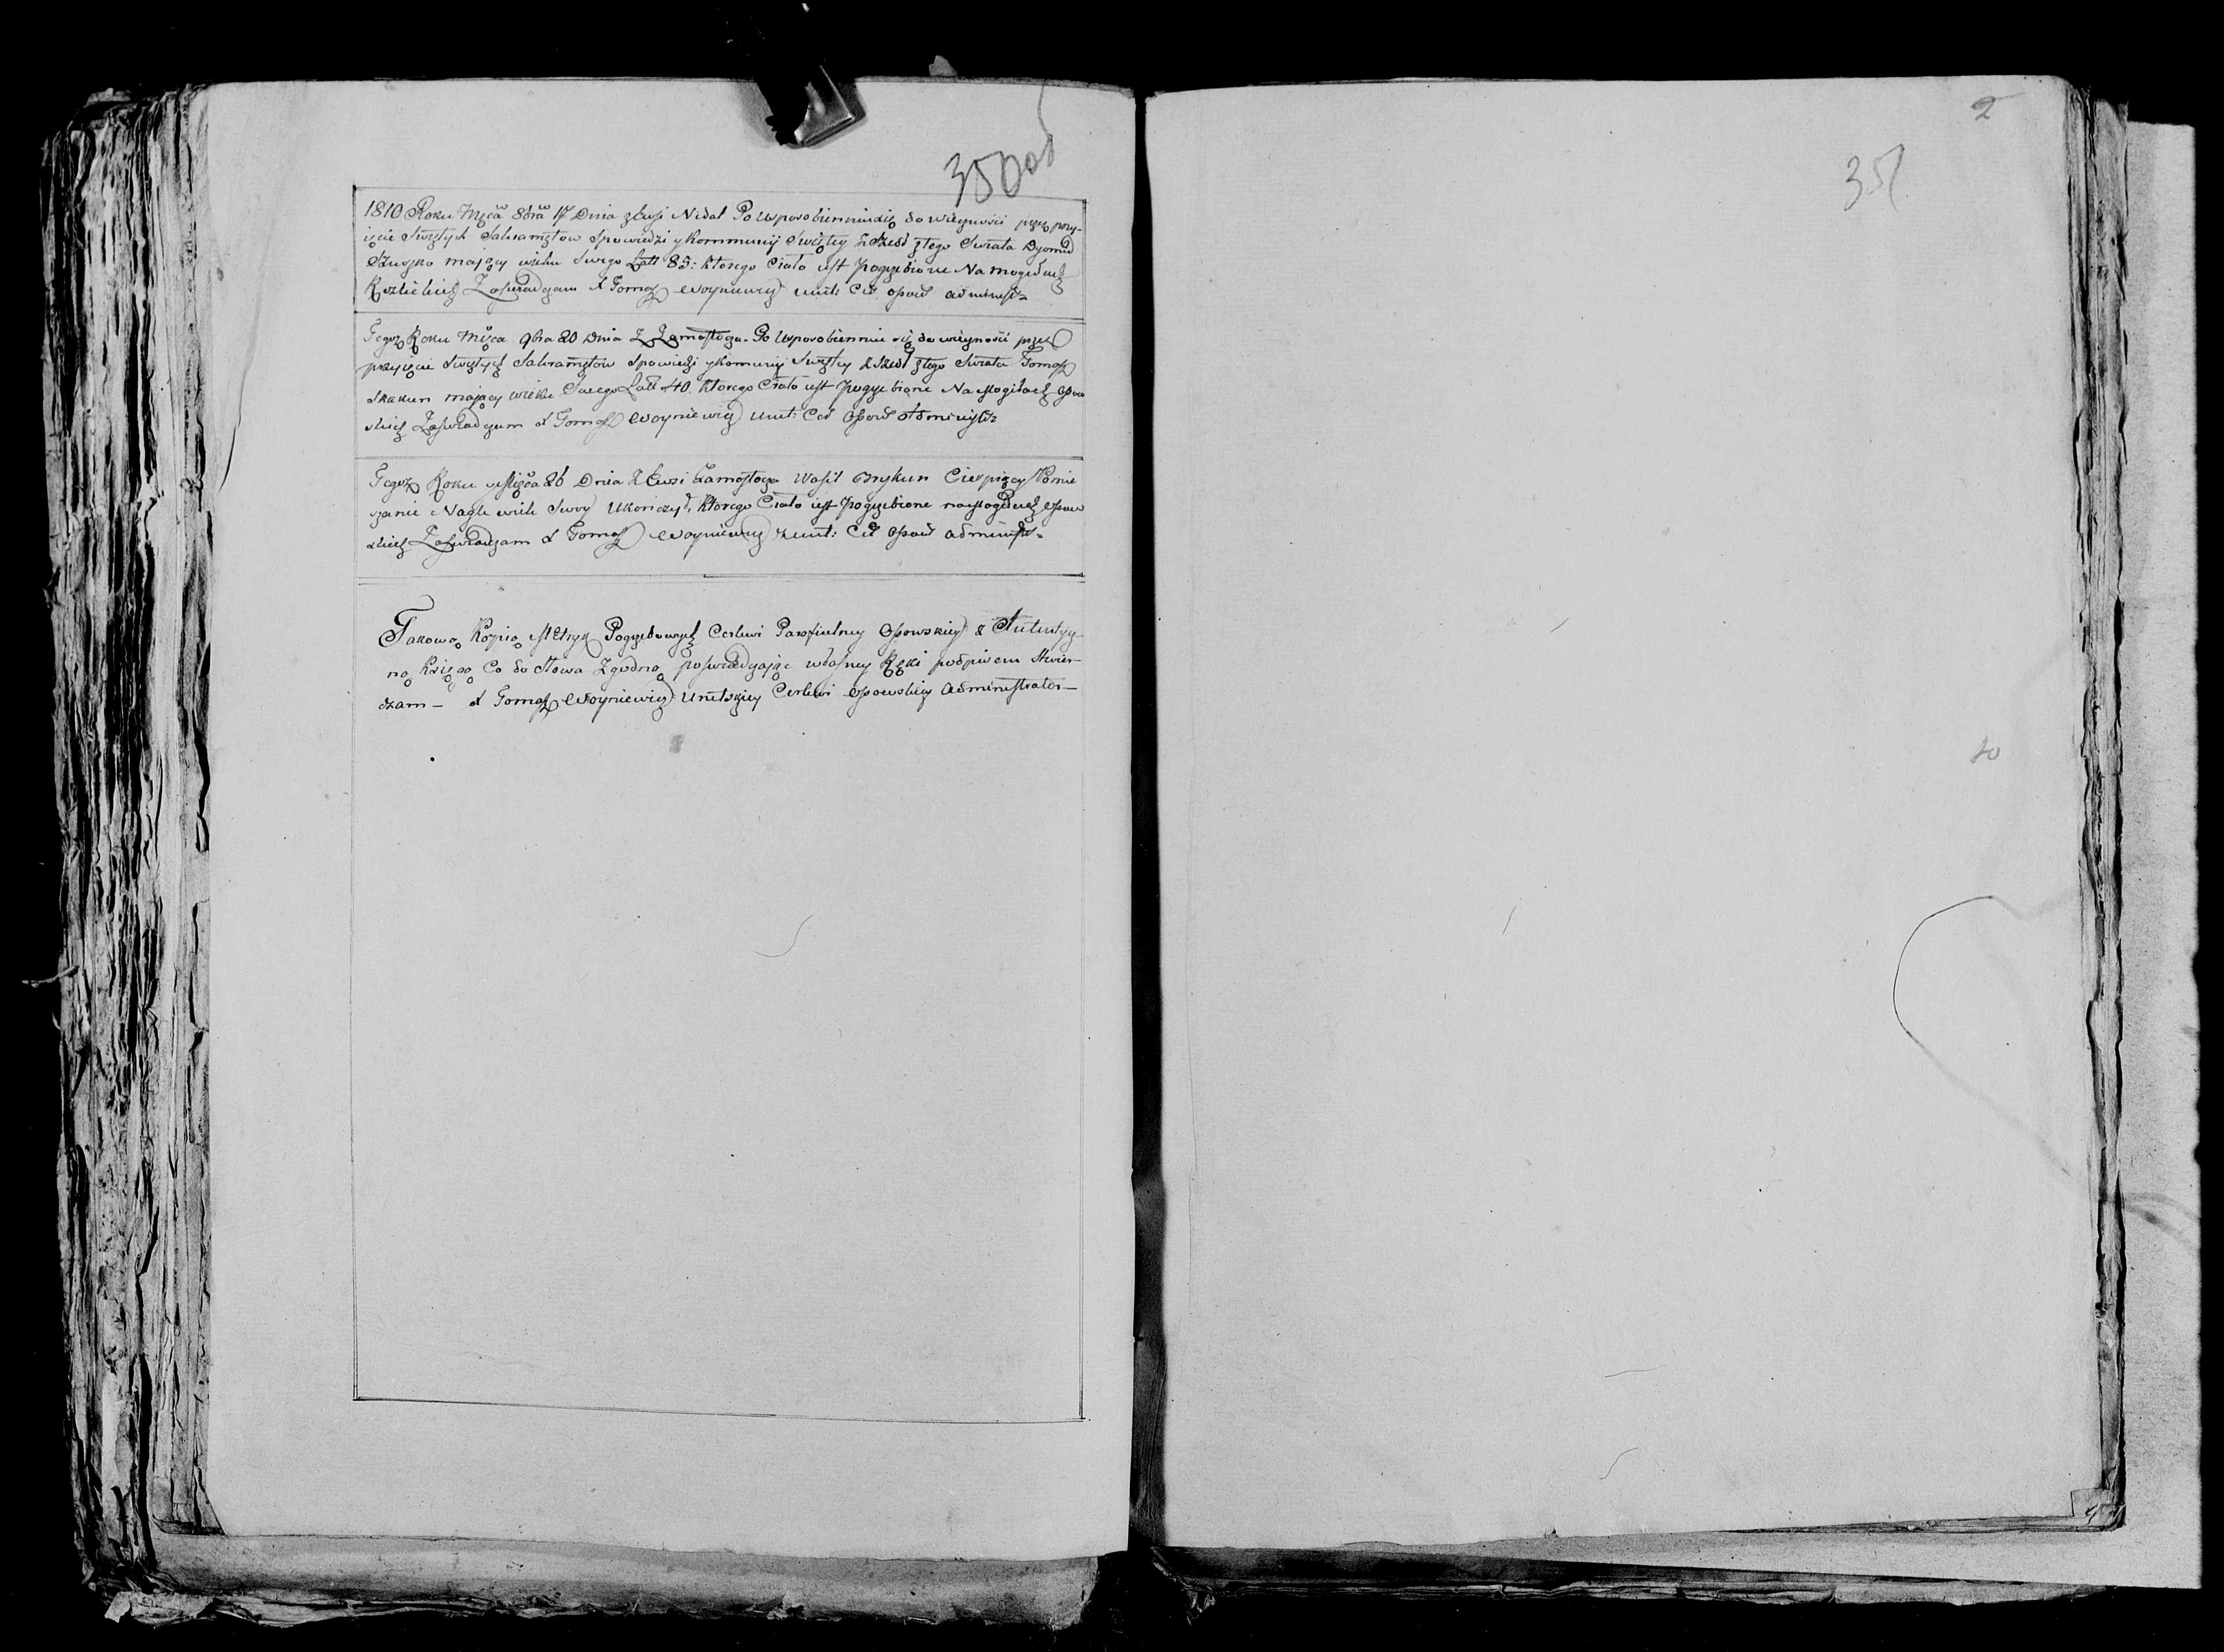 350 об
1810 Roku Mҫca 8bra 17 Dnia z Wsi Nidal Po Usposobienniu się do wiecznosci przez przy-
ięcie Swętych Sakramętow Spowiedzi y Kommunij Swiętey zszedł z tego Swiata Dyomid
Szuszko maiący wieku Swego Latt 85: ktorego Ciało iest Pogrzebione Na mogiłach
Zaswiadczam X Tomasz Woyniewicz Unit: Cer: Opow: administr
Tegoż Roku Mҫca 9bra 20 Dnia Z Zamostocza Po Usposobienniu się do wiecznosci przez
przyięcie Swętych Sakramętow Spowiedzi y Komunij Swętey zszedł z tego Swiata Tomasz
Skakun maiący wieku Swego Latt 40. ktorego Ciało iest Pogrzebione Na Mogiłach Opow
skich Zaswiadczam X Tomasz Woyniewicz Unit: Cer: Opow: Administr
Tegoż Roku Miҫca 26 Dnia Z Wsi Zamostocza Wasil Brykun Cierpiący Pomie
szanie Nagle wiek Swoy Ukonczył, ktorego Ciało iest Pogrzebione na Mogiłach Opow
skich Zaswiadczam X Tomasz Woyniewicz Unit: Cer: Opow: administr
Takową Kopią Metryk Pogrzebowych Cerkwi Parafialney Opowskiey z Autentycz-
ną Księgą Co do Słowa Zgodną poswiadczaiąc własney Ręki podpisem Stwier-
dzam — X Tomasz Woyniewicz Unitskiey Cerkwi Opowskiey administrator —
2
351